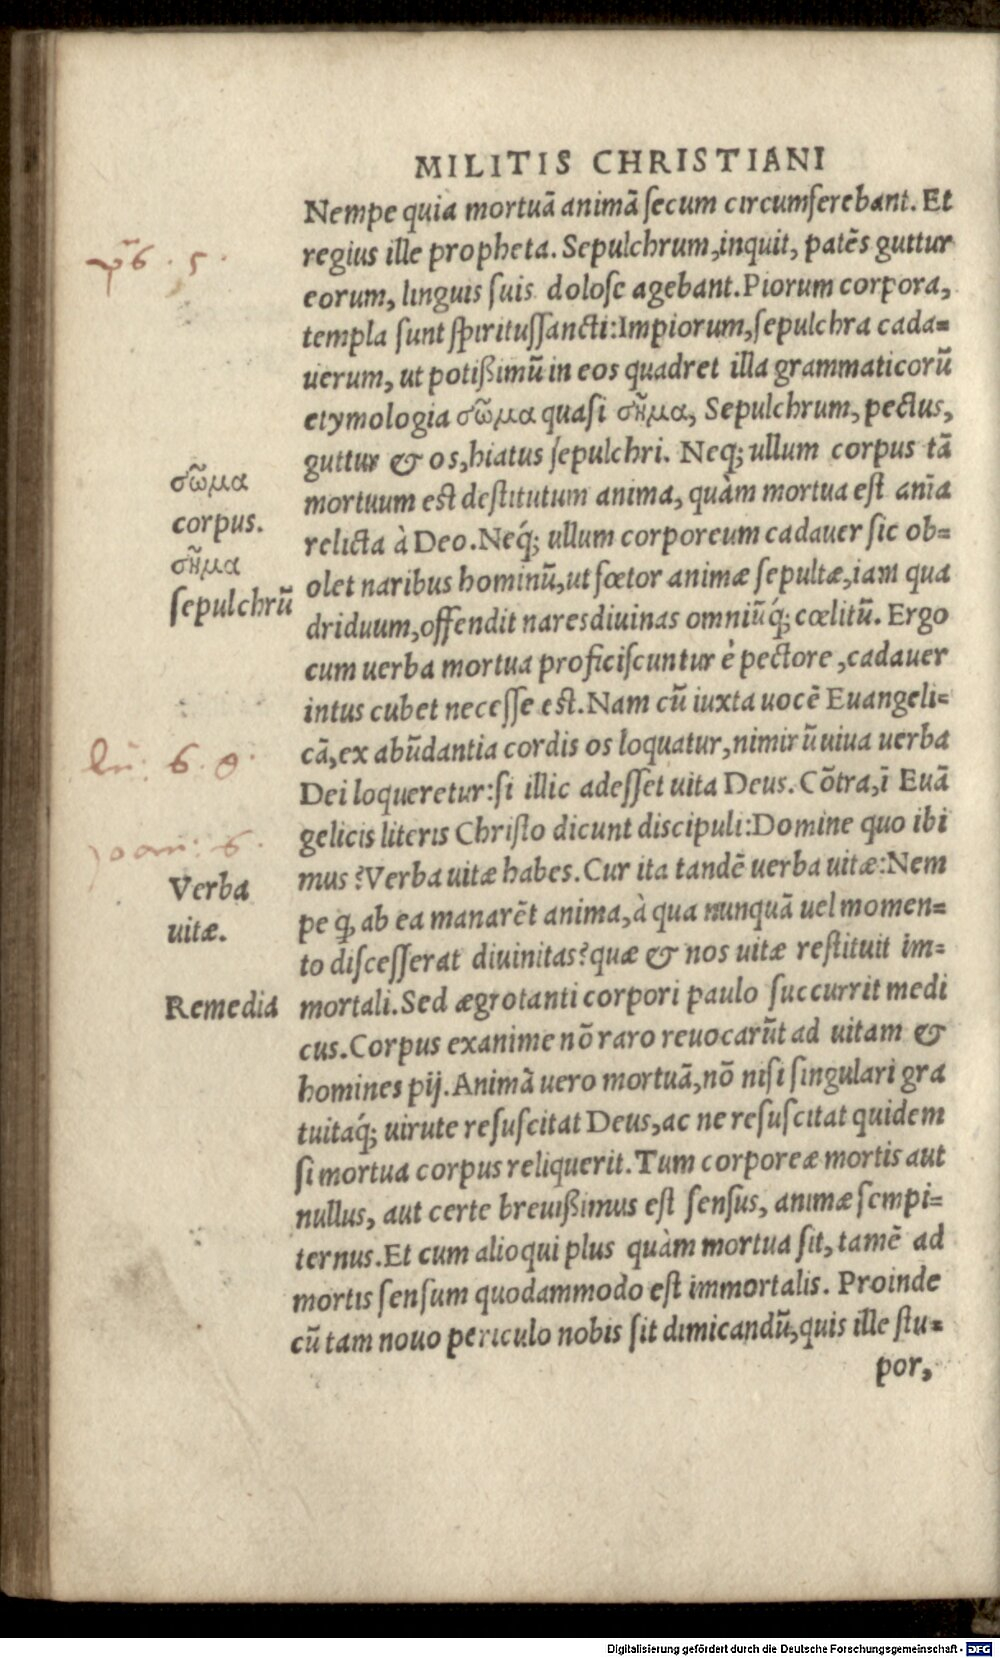 MILITIS CHRISTIANI
Nempe quia mortuã animã ſecum circumferebant. Et
regius ille propheta. Sepulchrum, inquit, patẽs guttur
eorum, linguis ſuis doloſe agebant. Piorum corpora,
templa ſunt ſpirituſſancti: Impiorum, ſepulchra cada=
uerum, ut potißimũ in eos quadret illa grammaticorũ
etymologia σῶμα quaſi σῆμα, Sepulchrum, pectus,
guttur & os, hiatus ſepulchri. Neq; ullum corpus tã
mortuum eſt deſtitutum anima, quàm mortua eſt aĩa
relicta à Deo. Neq́; ullum corporeum cadauer ſic ob=
olet naribus hominũ, ut fœtor animæ ſepultæ, iam qua
driduum, offendit nares diuinas omniũq́; cœlitũ. Ergo
cum uerba mortua proficiſcuntur è pectore, cadauer
intus cubet neceſſe eſt. Nam cũ iuxta uocẽ Euangeli=
cã, ex abũdantia cordis os loquatur, nimirũ uiua uerba
Dei loqueretur: ſi illic adeſſet uita Deus. Cõtra, ĩ Euã
gelicis literis Chriſto dicunt diſcipuli: Domine quo ibi
mus? Verba uitæ habes. Cur ita tandẽ uerba uitæ: Nem
pe ꝙ ab ea manarẽt anima, à qua nunquã uel momen=
to diſceſſerat diuinitas? quæ & nos uitæ reſtituit im=
mortali. Sed ægrotanti corpori paulo ſuccurrit medi
cus. Corpus exanime nõ raro reuocarũt ad uitam &
homines pij. Animã uero mortuã, nõ niſi ſingulari gra
tuitaq́; uirute reſuſcitat Deus, ac ne reſuſcitat quidem
ſi mortua corpus reliquerit. Tum corporeæ mortis aut
nullus, aut certe breuißimus eſt ſenſus, animæ ſempi=
ternus. Et cum alioqui plus quàm mortua ſit, tamẽ ad
mortis ſenſum quodammodo eſt immortalis. Proinde
cũ tam nouo periculo nobis ſit dimicandũ, quis ille ſtu=
por,
σῶμα
corpus.
σῆμα
ſepulchrũ
Verba
uitæ.
Remedia
5.
6.
6.
Digitalisierung gefördert durch die Deutsche Forschungsgemeinschaft - DFG